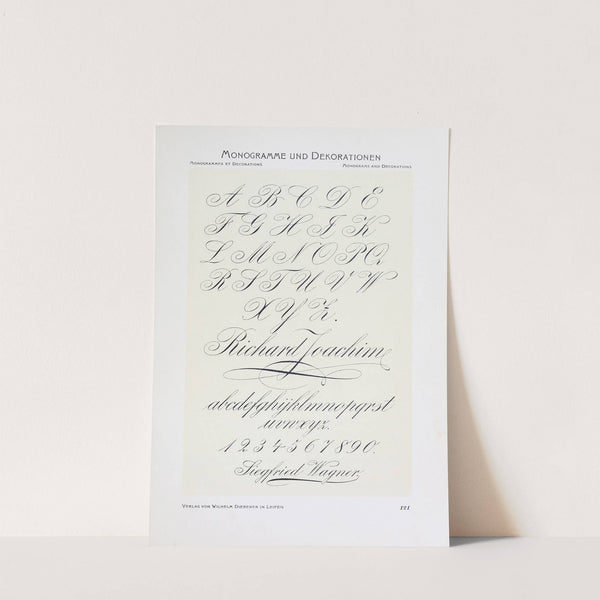 Monogramme und Dekorationen
Monogrammes et Decorations
Monograms and Decorations
A B C D E
F G H I K
L M N O P Q
R S T U V W
X Y Z.
Richard Joachim
abcdefghijklmnopqrst
uvwxyz.
1 2 3 4 5 6 7 8 9 0.
Siegfried Wagner.
Verlag von Wilhelm Diebener in Leipzig
121